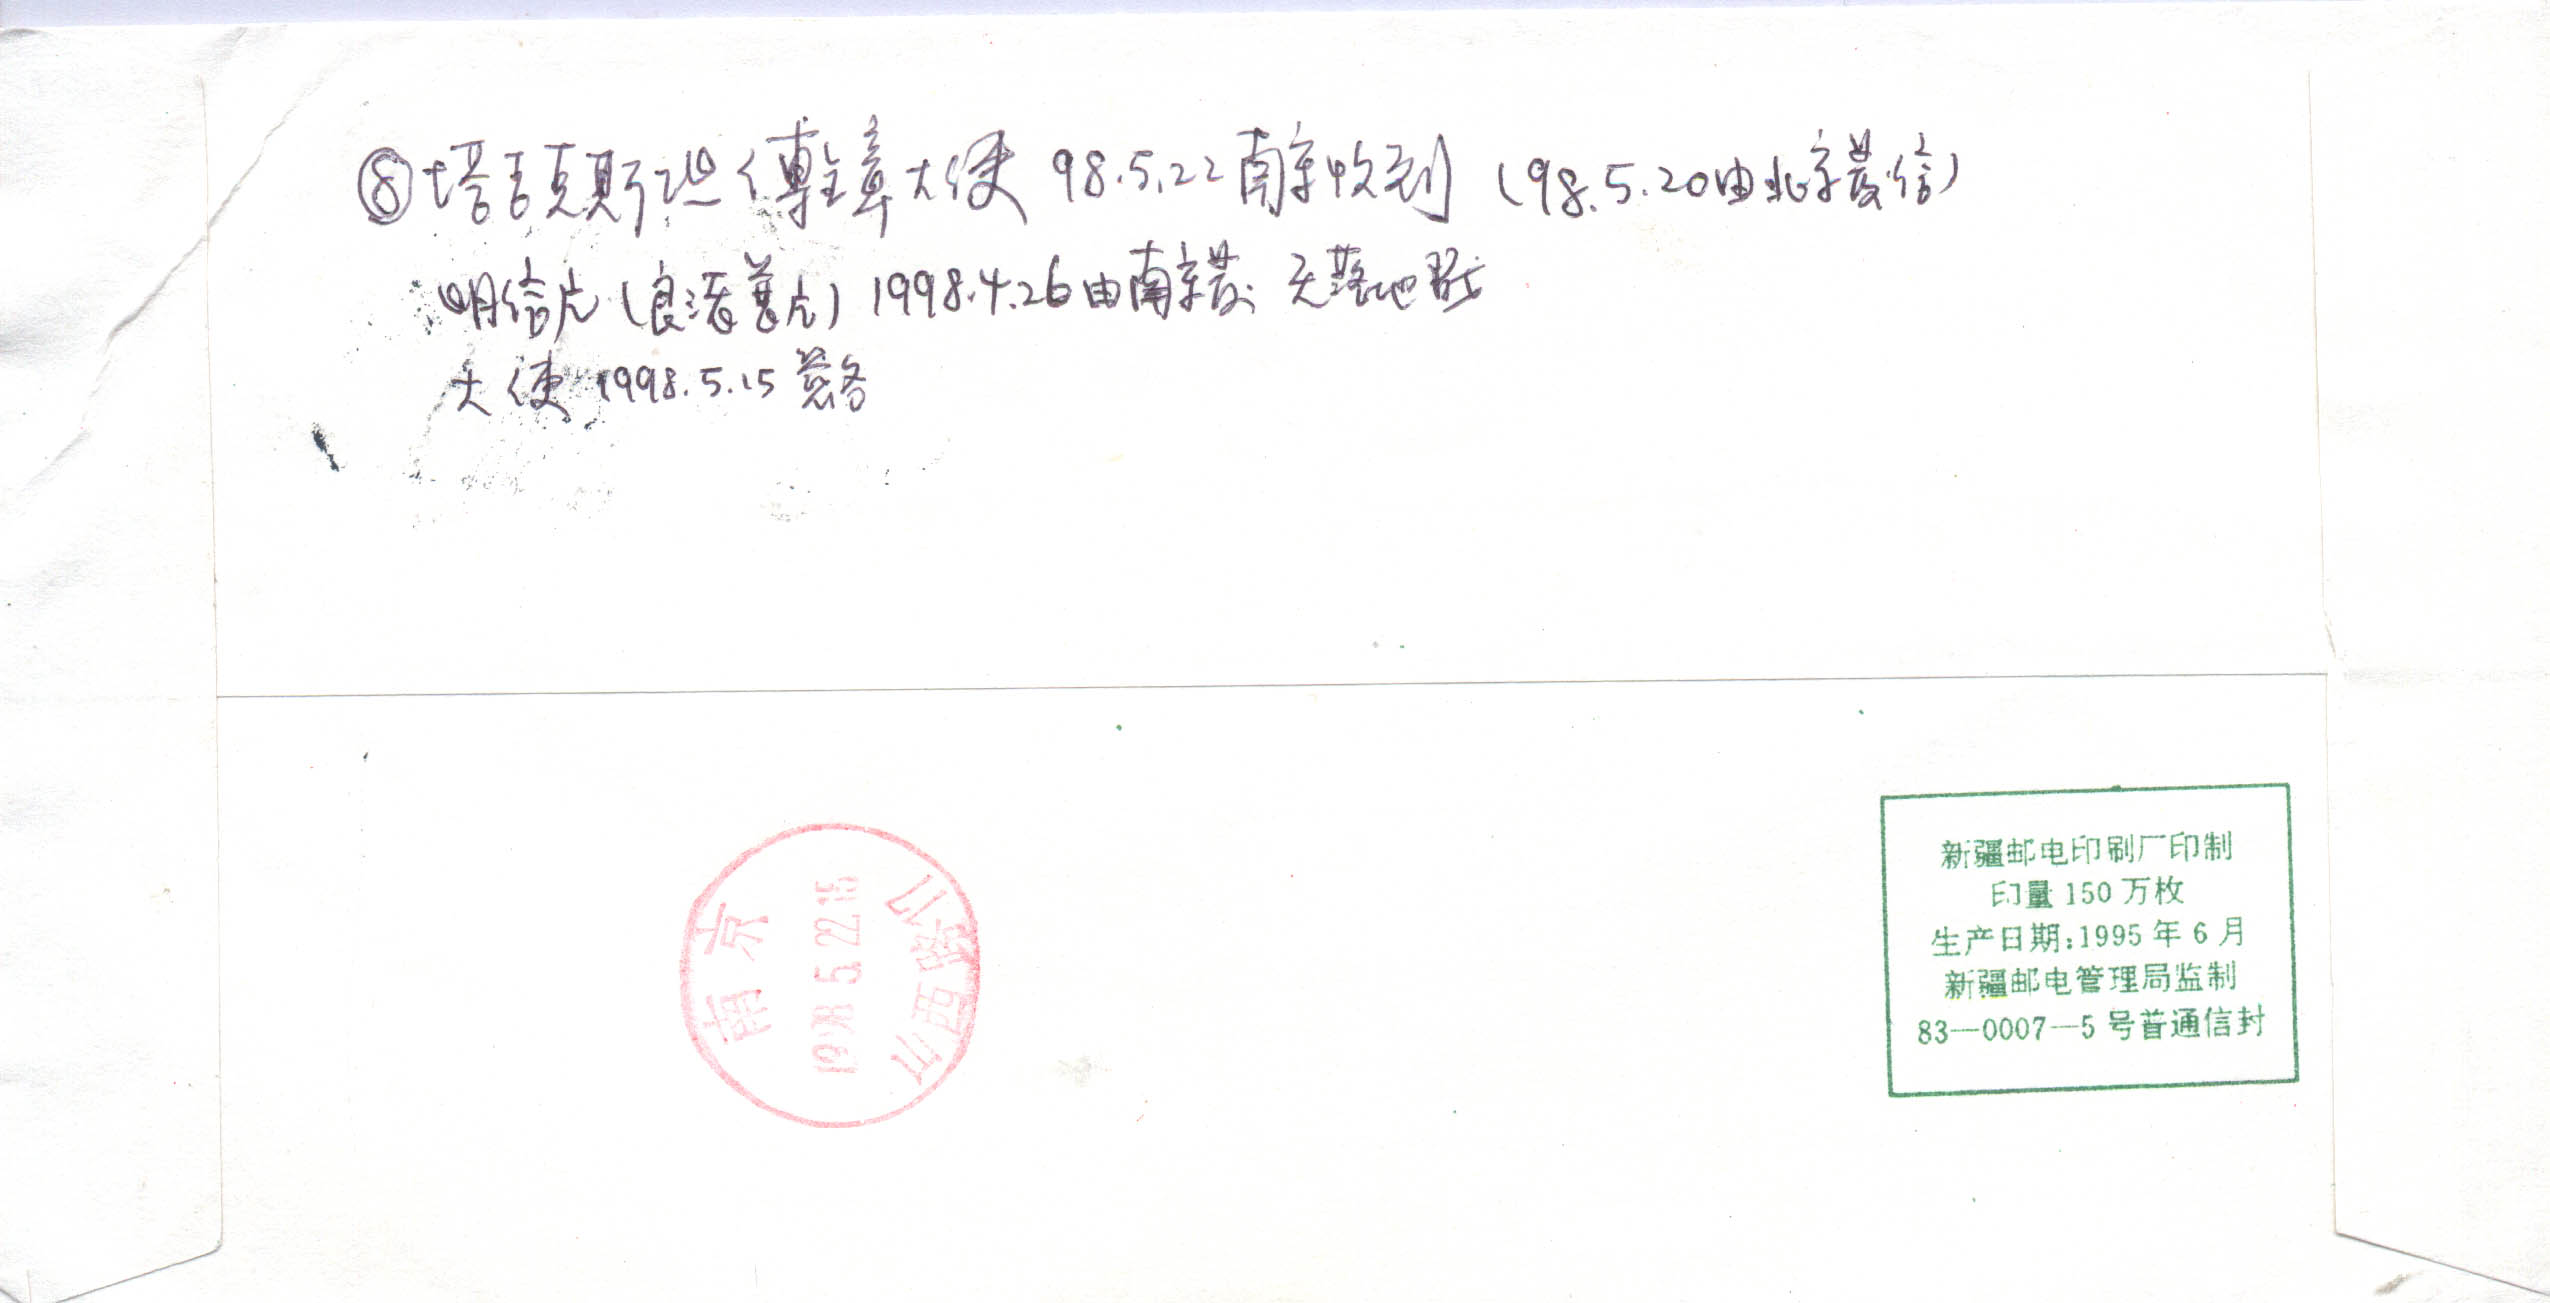 ⑧塔吉克斯坦傅全章大使 98.5.22南京收到 (98.5.20由北京发信)
明信片(良渚普片) 1998.4.26由南京发 无落地戳
大使 1998.5.15 签名
南京
1998.5.22.15
山西路 (1)
新疆邮电印刷厂印制
印量 150 万枚
生产日期:1995 年 6 月
新疆邮电管理局监制
83—0007—5 号普通信封